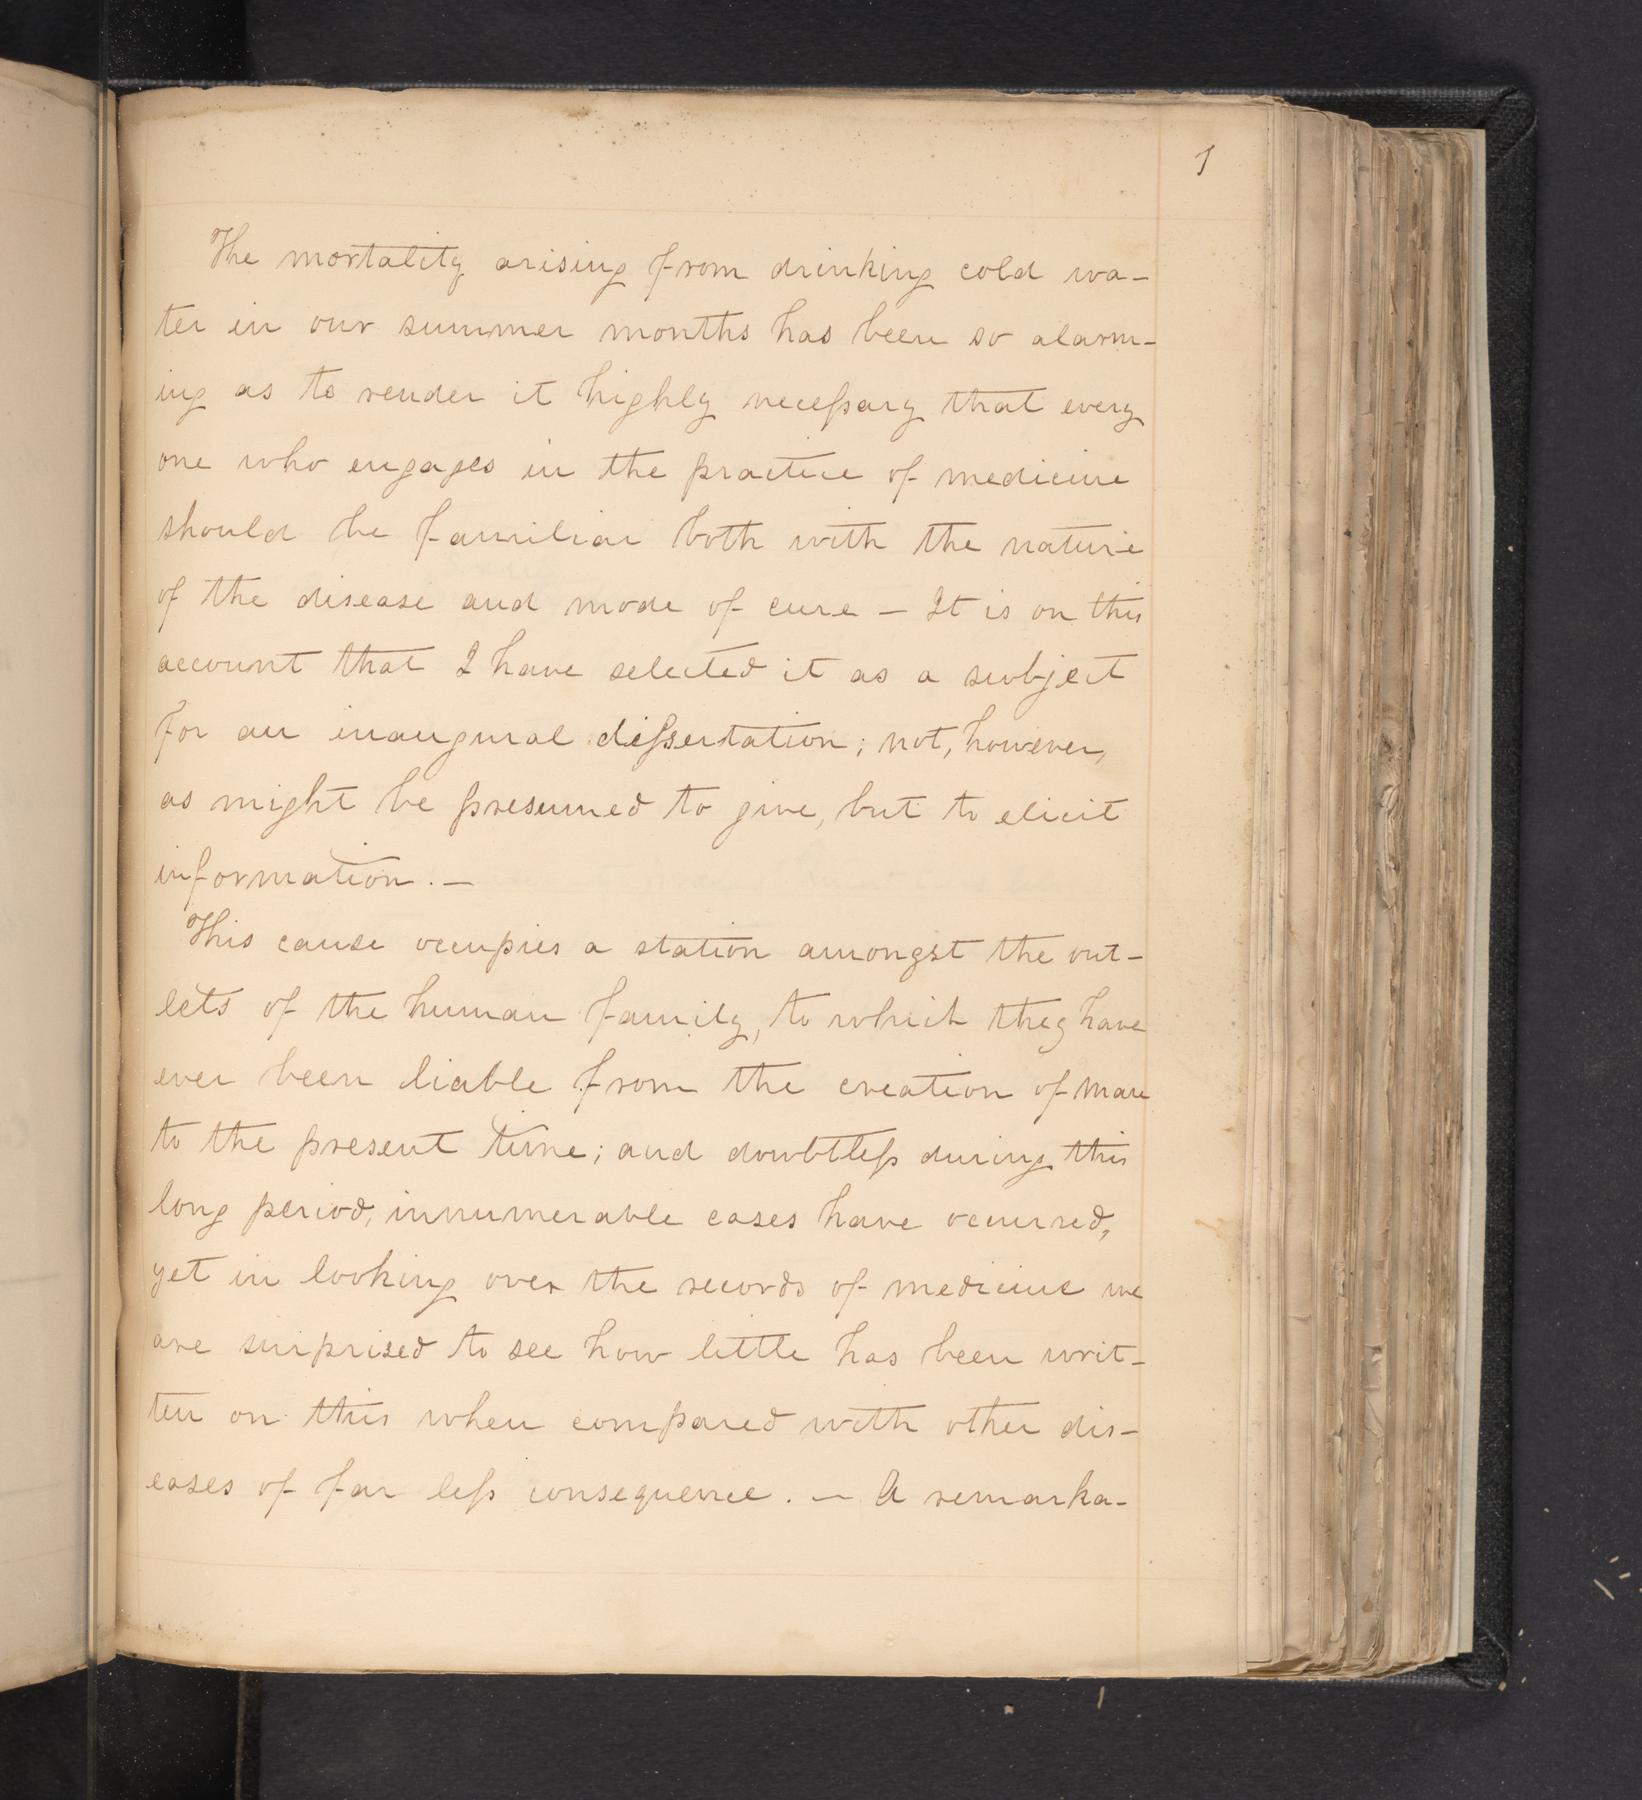 1
The mortality arising from drinking cold wa-
ter in our summer months has been so alarm-
ing as to render it highly necessary that every
one who engages in the practice of medicine
should be familiar both with the nature
of the disease and mode of cure – It is on this
account that I have selected it as a subject
for an inaugural dissertation; not, however,
as might be presumed to give, but to elicit
information. –
This cause occupies a station amongst the out-
lets of the human family, to which they have
ever been liable from the creation of man
to the present time; and doubtless during this
long period, innumerable cases have occurred,
yet in looking over the records of medicine we
are surprised to see how little has been writ-
ten on this when compared with other dis-
eases of far less consequence. – A remarka-